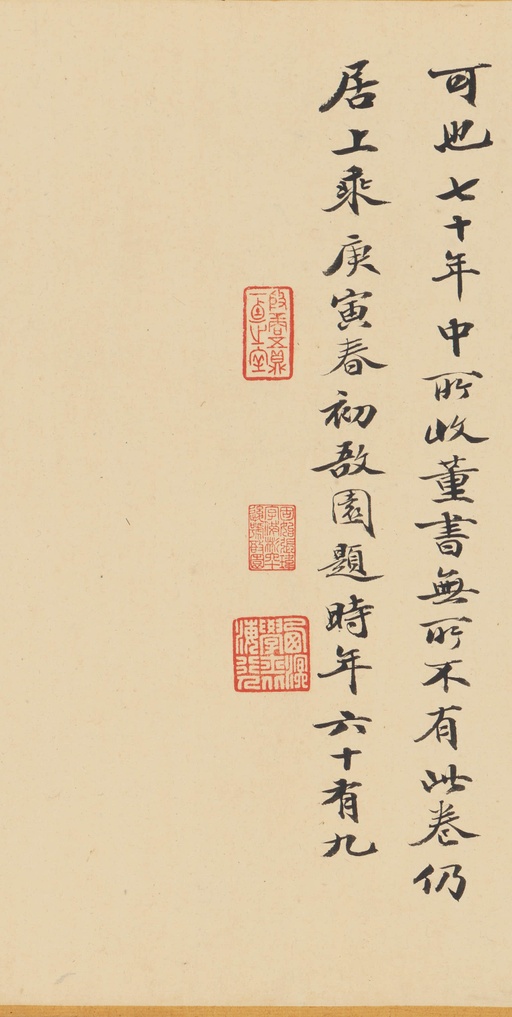 可也七十年中所收董書無所不有此卷仍
居上乘庚寅春初敔園題時年六十有九